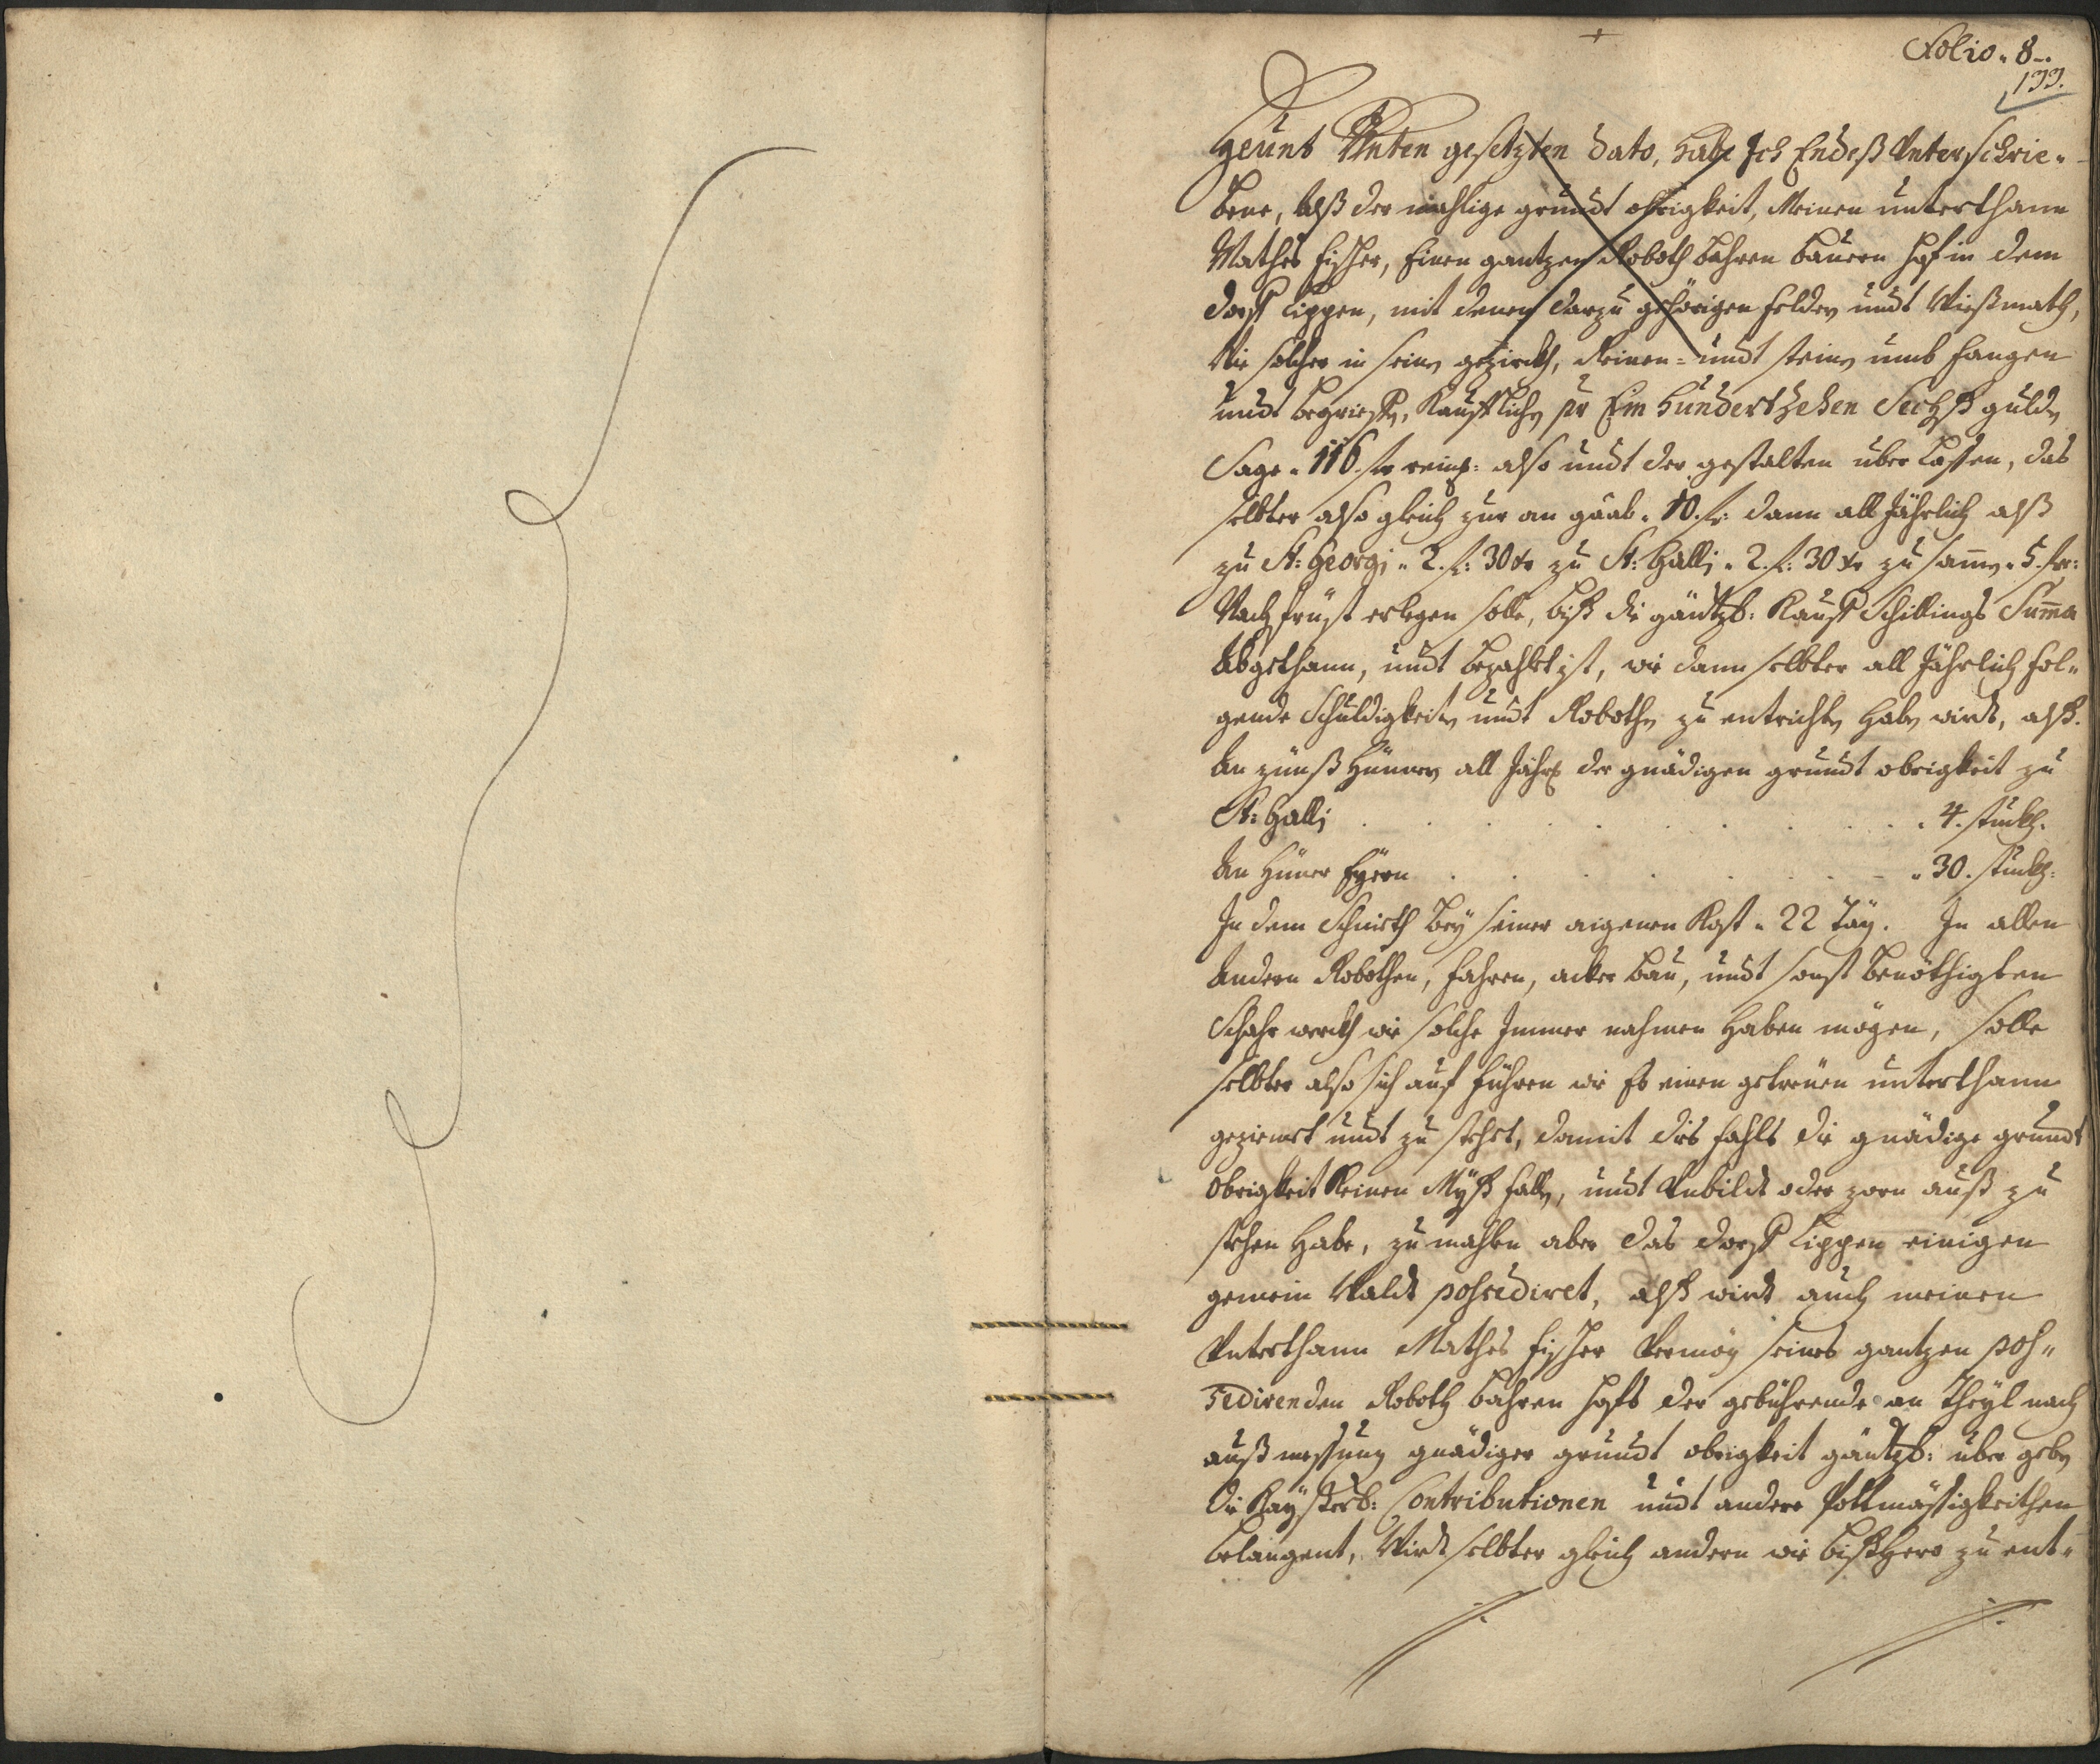 Folio. 8.
133.
Heunt Unten gesetzten dato, habe Ich Endeß Unterschrie-
bene, alß der mahlige grundt obrigkeit, Meinen unterthann
Mathes Fischer, Einen gantzen Roboth bahren bauern hof in dem
dorff Lippen, mit denen darzu gehörigen felder undt Wießmath,
Wie solcher in seinen gezirckh, Reinen- undt steinen umb fangen
undt begriffen, Kaufflichen pr Ein hundertzehen Sechß gulden
Sage. 116. fr reinl: also undt der gestalten über Lassen, das
selbter also gleich zur an gaab. 10. fr: dann all Jährlich alß
zu St: Georgi. 2. f: 30 xr zu St: Galli. 2. f: 30 xr zu samen. 5. fr:
Nachfrüst erlegen solle, biß die gäntzl: Kauff Schillings Suma
Abgethann, undt bezahlt ist, wie dann selbter all Jährlich fol-
gende Schuldigkeiten undt Robothen zu entrichten haben wirdt, alß.
An zünß Hünner all Jährl der gnädigen grundt obrigkeit zu
St: Galli . . . . . . . . . 4. stückh.
An Hüner Eyern . . . . . . . . 30. stückh:
In dem Schnieth bey seiner aigenen Kost. 22 Täg. In allen
Andern Robothen, fahren, acker bau, undt sonst benöthigten
Schahr werckh wie solche Immer nahmen haben mögen, solle
selbter also sich auf führen wie Es einen getreuen unterthann
geziemet undt zu stehet, damit dies fahls die gnädige grundt
Obrigkeit Keinen Myß fallen, undt Unbildt oder zorn auß zu
stehen habe, zu mahlen aber das dorff Lippen einigen
gemein Waldt possediret, alß wirdt auch meinen
Unterthann Mathes Fischer Vermög seines gantzen pos-
sedirenden Roboth bahren hofs der gebührende an theyl nach
auß messung gnädiger grundt obrigkeit gäntzl: über geben
Die Kayßerl: Contributionen undt andere Pottmässigkeithen
belangent, Wirdt selbter gleich andern wie bißhero zu ent-